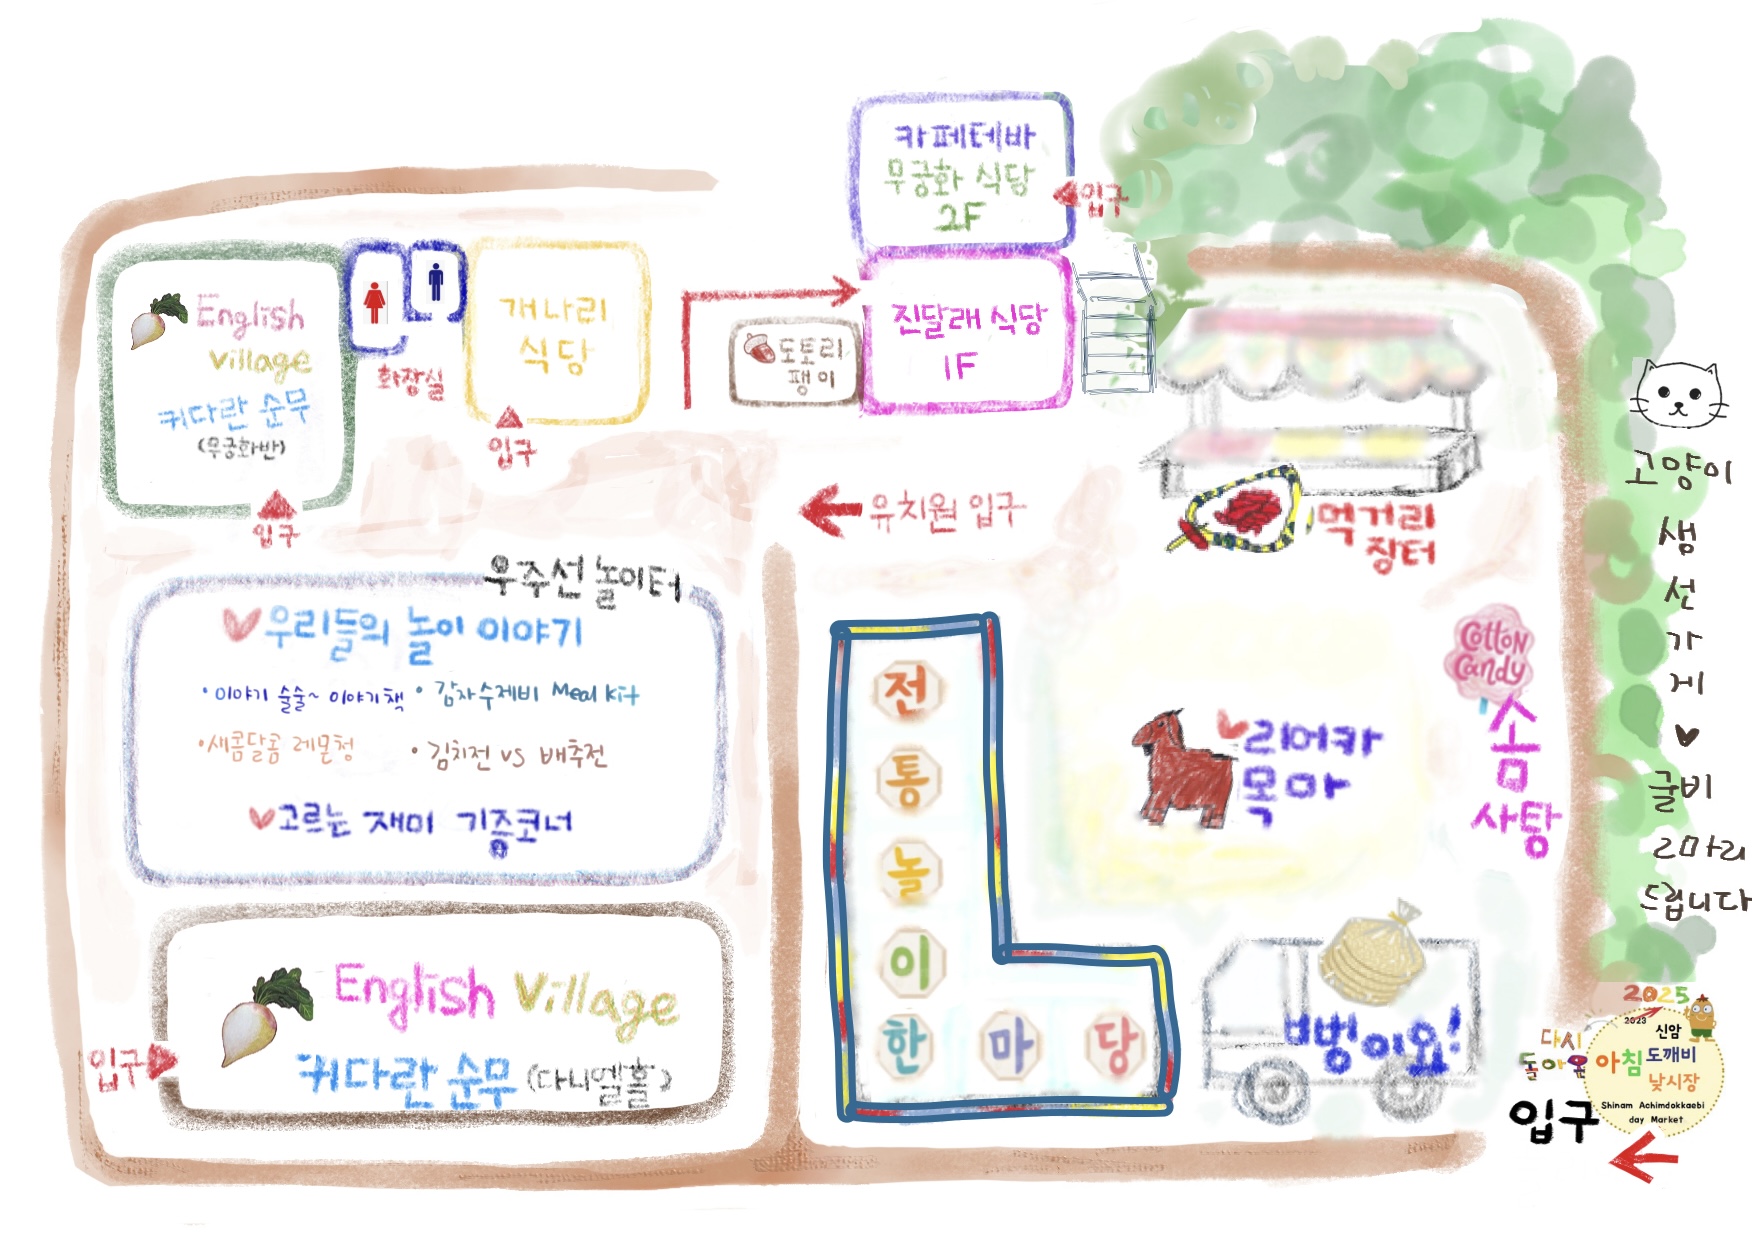 카페테바
무궁화 식당
2F
입구
English
village
커다란 순무
(무궁화반)
입구
화장실
개나리
식당
입구
도토리
팽이
진달래 식당
1F
유치원 입구
먹거리
장터
우주선 놀이터
우리들의 놀이 이야기
• 이야기 술술~ 이야기책 • 감자수제비 Meal Kit
• 새콤달콤 레몬청 • 김치전 vs 배추전
고르는 재미 기증코너
English Village
커다란 순무 (다니엘홀)
입구
전
통
놀
이
한 마 당
리어카
목마
Cotton
Candy
솜
사탕
뻥이요!
고양이
생
선
가
게
굴비
2마리
드립니다
2025
2023
다시
돌아온
신암
아침 도깨비
낮시장
Shinam Achimdokkaebi
day Market
입구